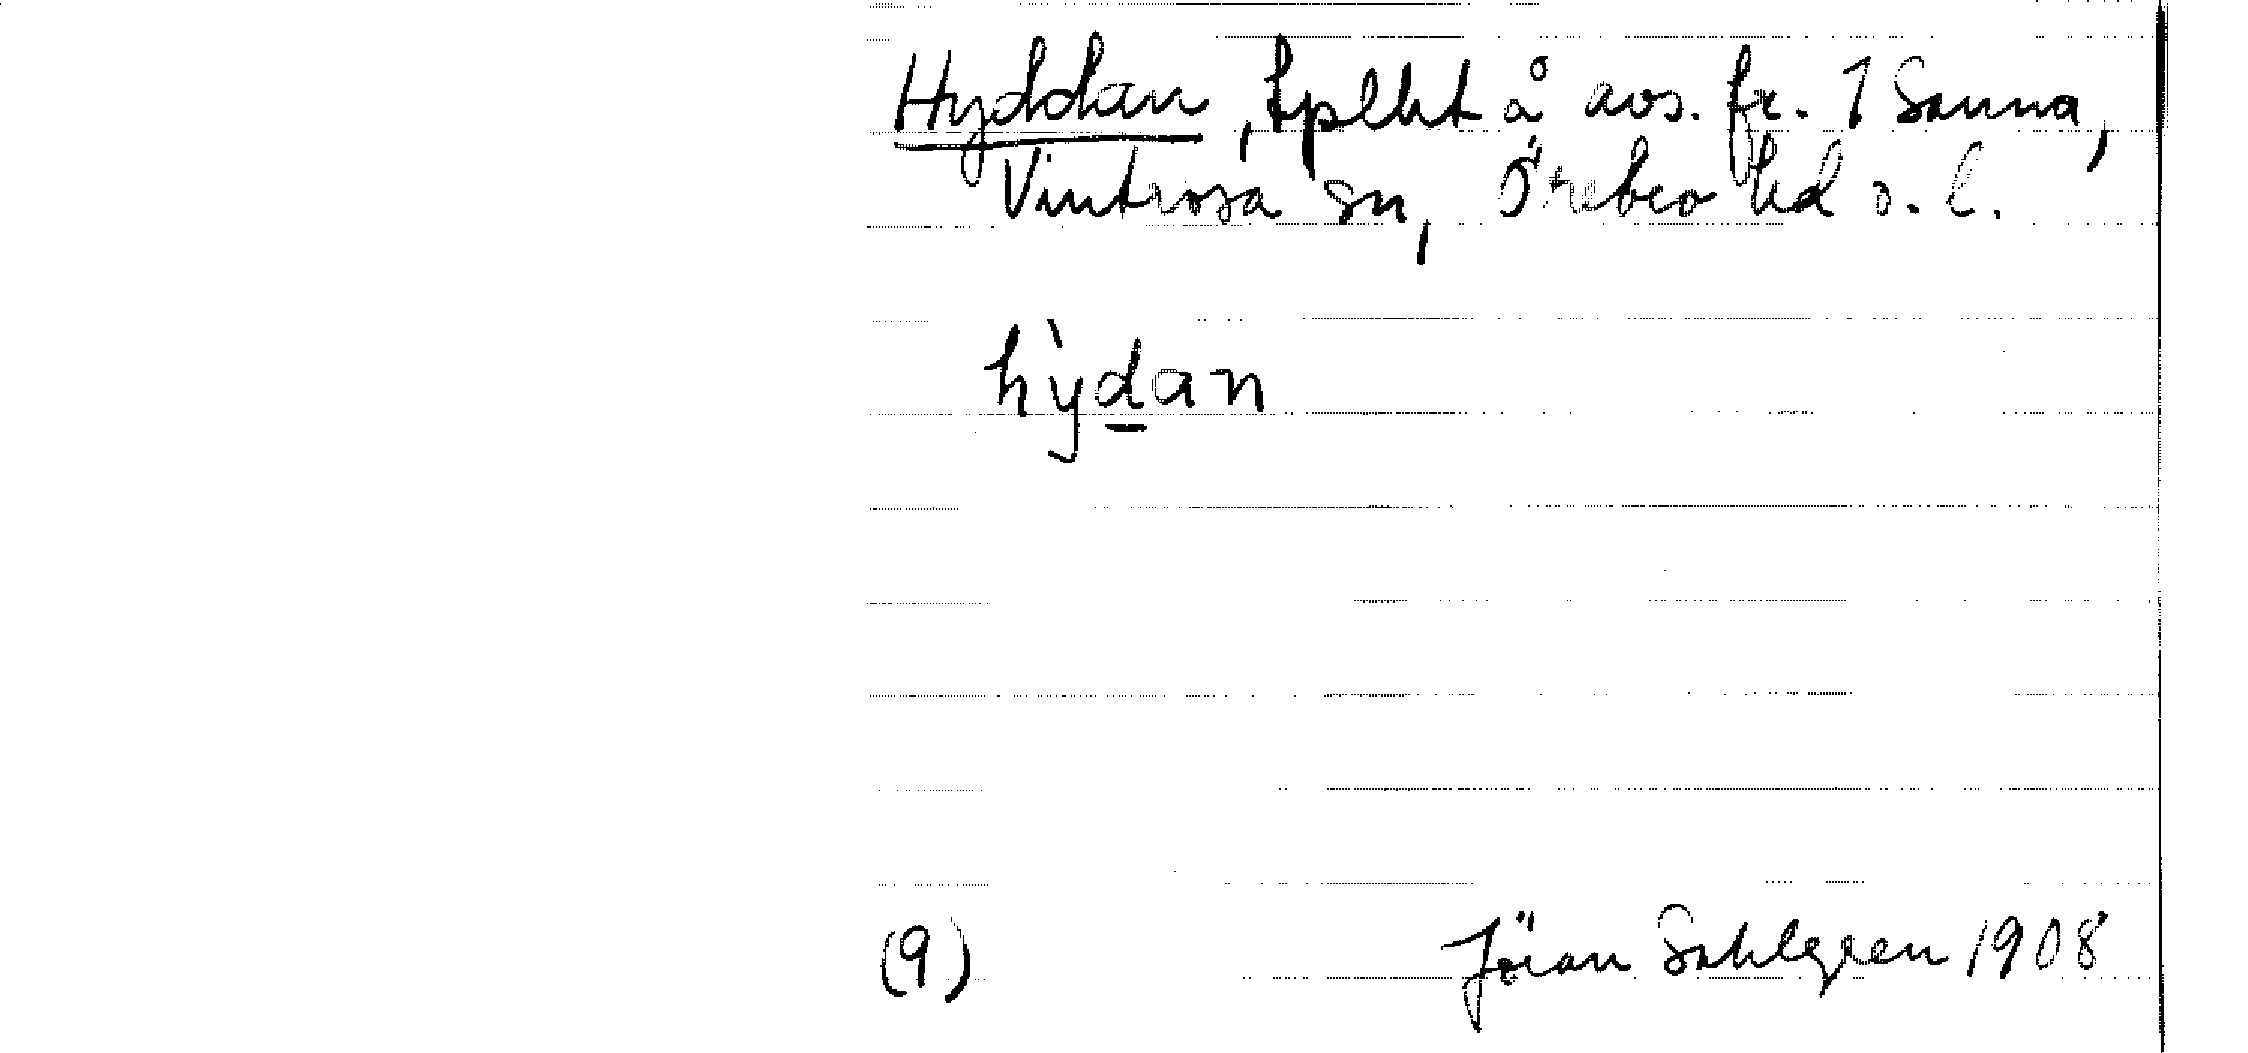 Hyddan, tplht å avs. fr. 1 Sanna,
Vintrosa sn, Örebro hd o. l.
hỳd̲an
(9) Jöran Sahlgren 1908